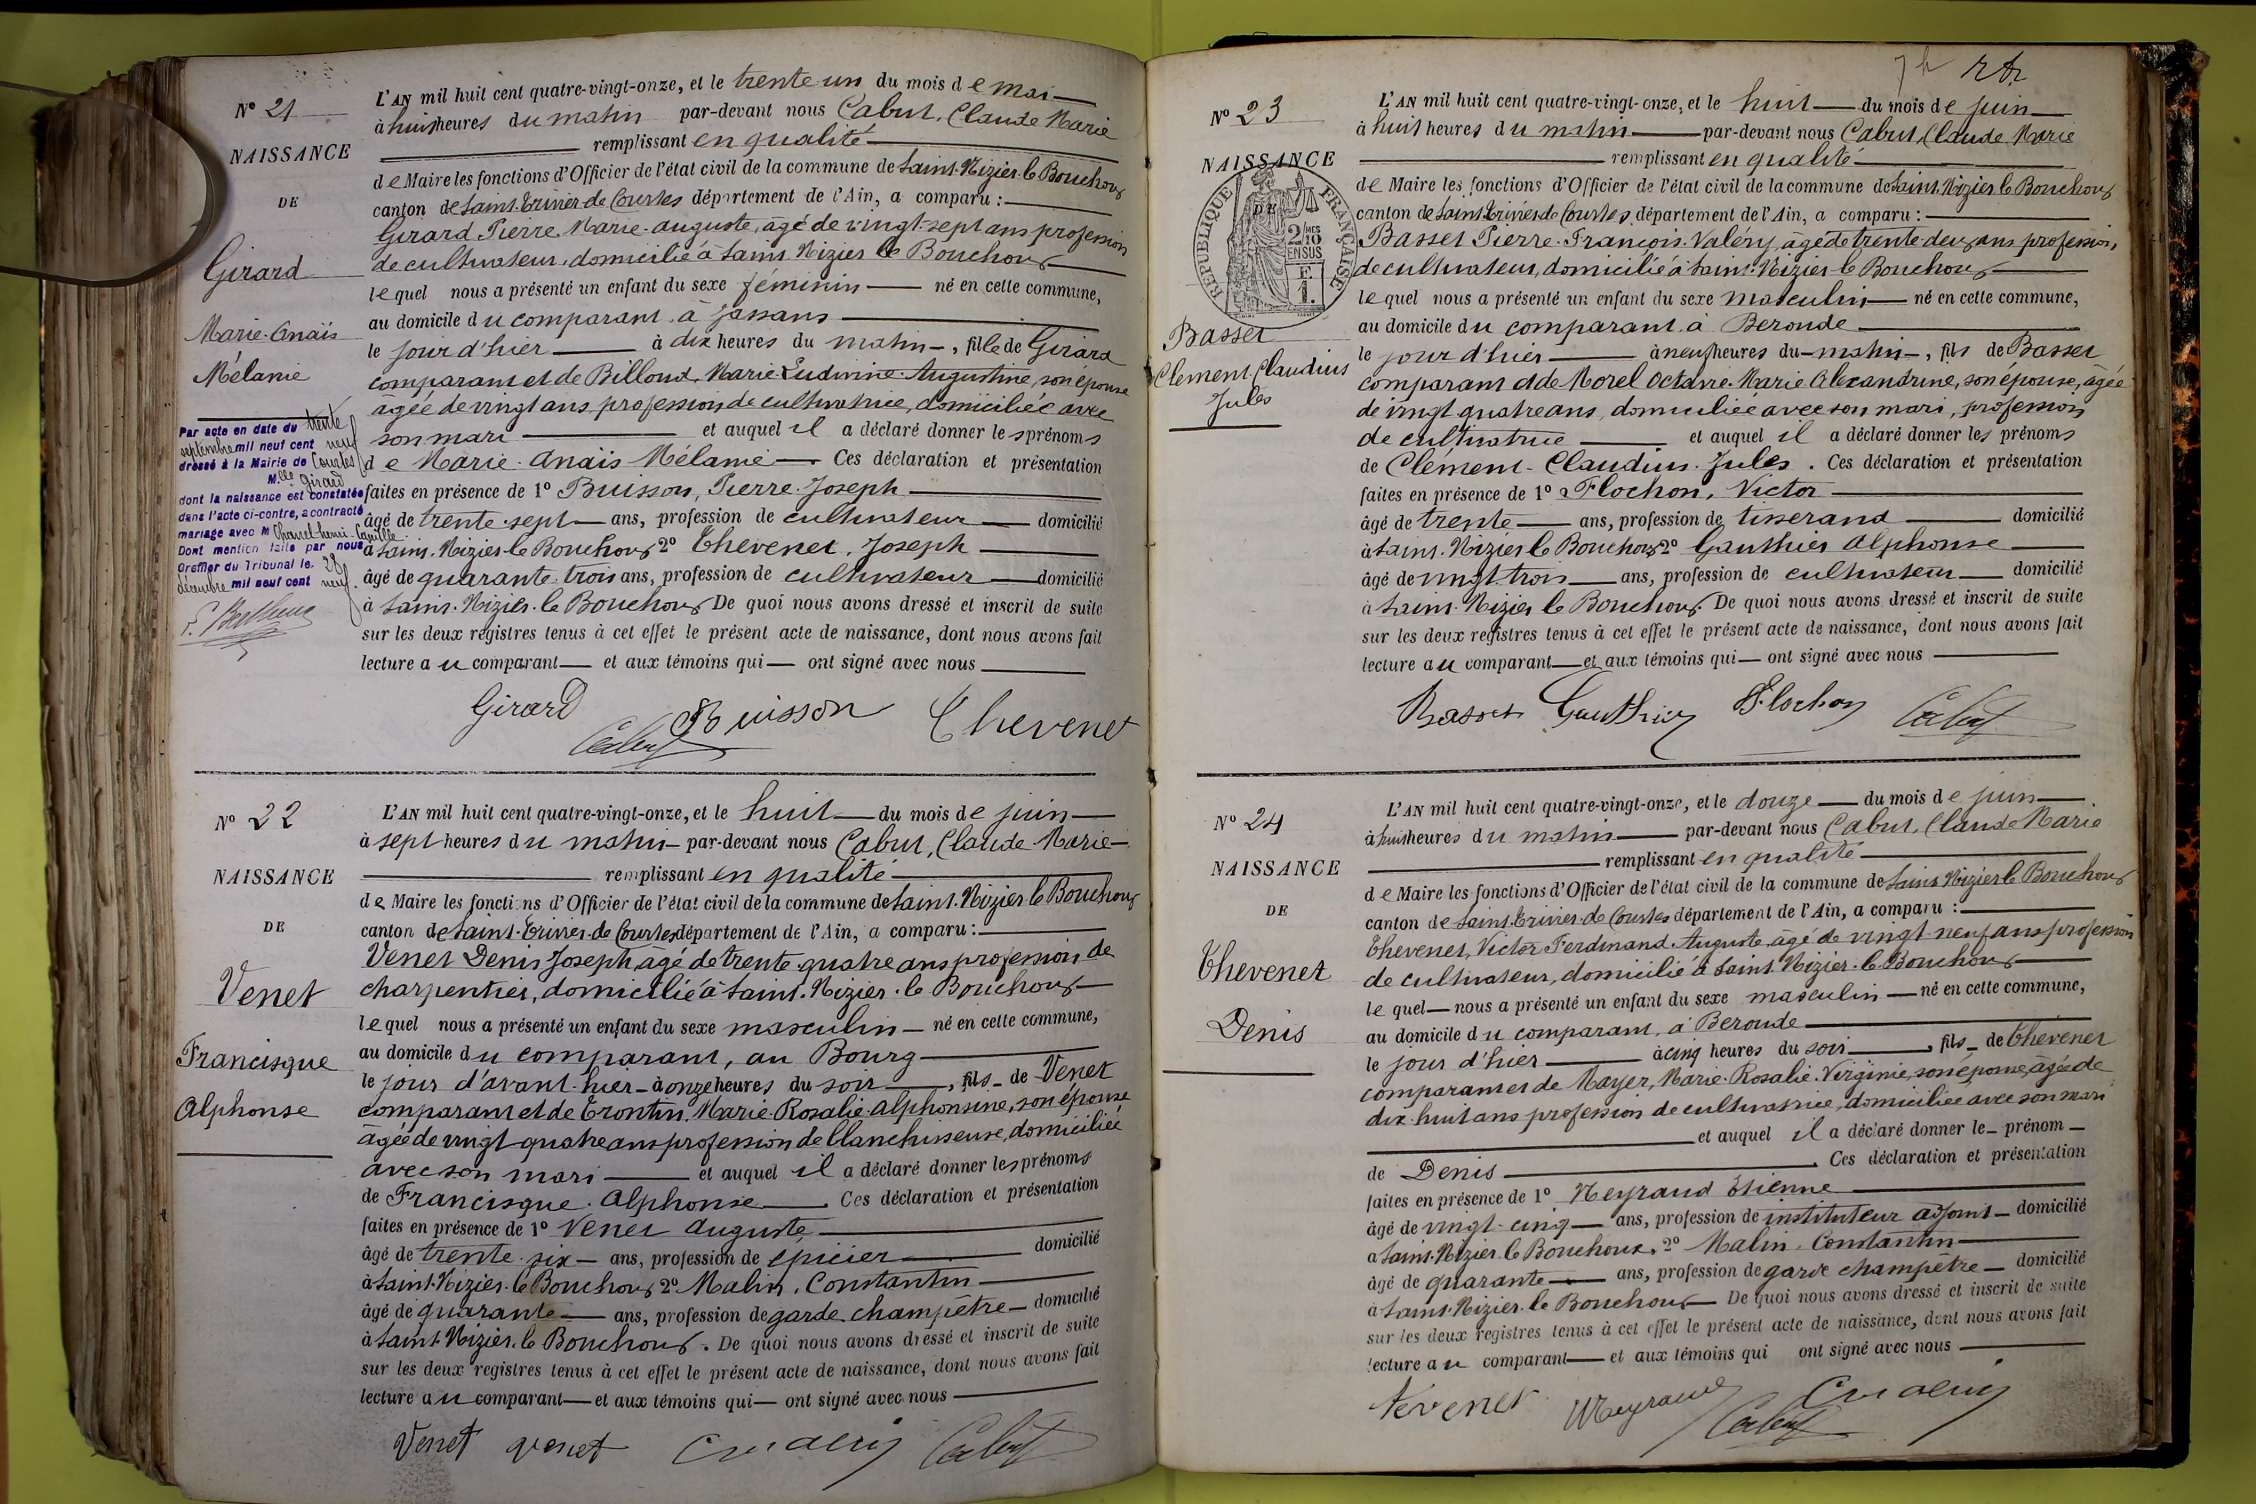 N° 21
NAISSANCE
DE
Girard
Marie-Anaïs
Mélanie
Par acte en date du trente
septembre mil neuf cent neuf
dressé à la Mairie de Courtes
Mlle Girard
dont la naissance est constatée
dans l'acte ci-contre, a contracté
mariage avec M Chanel henri-Camille
Dont mention faite par nous
Greffier du Tribunal le 28
décembre mil neuf cent neuf.
L'AN mil huit cent quatre-vingt-onze, et le trente un du mois de mai
à huit heures du matin par-devant nous Cabut, Claude Marie
remplissant en qualité
de Maire les fonctions d'Officier de l'état civil de la commune de Saint-Nizier-le Bouchoux
canton de Saint-Trivier-de Courtes département de l'Ain, a comparu :
Girard Pierre Marie-auguste, âgé de vingt-sept ans profession
de cultivateur, domicilié à Saint Nizier le Bouchoux
lequel nous a présenté un enfant du sexe féminin né en cette commune,
au domicile du comparant à Jassans
le jour d'hier à dix heures du matin, fille de Girard
comparant et de Billoud, Marie Ludivine Augustine, son épouse
âgée de vingt ans, profession de cultivatrice, domiciliée avec
son mari et auquel il a déclaré donner les prénoms
de Marie-Anaïs Mélanie Ces déclaration et présentation
faites en présence de 1° Buisson, Pierre Joseph
âgé de trente-sept ans, profession de cultivateur domicilié
à Saint-Nizier le Bouchoux 2° Thevenet, Joseph
âgé de quarante-trois ans, profession de cultivateur domicilié
à Saint-Nizier-le Bouchoux De quoi nous avons dressé et inscrit de suite
sur les deux registres tenus à cet effet le présent acte de naissance, dont nous avons fait
lecture au comparant et aux témoins qui ont signé avec nous
Girard Buisson Thevenet
Cabut
N° 22
NAISSANCE
DE
Venet
Francisque
Alphonse
L'AN mil huit cent quatre-vingt-onze, et le huit du mois de juin
à sept heures du matin par-devant nous Cabut, Claude Marie
remplissant en qualité
de Maire les fonctions d'Officier de l'état civil de la commune de Saint-Nizier-le Bouchoux
canton de Saint-Trivier-de Courtes département de l'Ain, a comparu :
Venet Denis Joseph, âgé de trente quatre ans profession de
charpentier, domicilié à Saint-Nizier-le Bouchoux
lequel nous a présenté un enfant du sexe masculin né en cette commune,
au domicile du comparant, au Bourg
le jour d'avant-hier à onze heures du soir, fils de Venet
comparant et de Trontin, Marie-Rosalie-Alphonsine, son épouse
âgée de vingt quatre ans profession de blanchisseuse, domiciliée
avec son mari et auquel il a déclaré donner les prénoms
de Francisque-Alphonse Ces déclaration et présentation
faites en présence de 1° Venet auguste
âgé de trente-six ans, profession de épicier domicilié
à Saint-Nizier-le Bouchoux 2° Malin, Constantin
âgé de quarante ans, profession de garde champêtre domicilié
à Saint-Nizier-le Bouchoux. De quoi nous avons dressé et inscrit de suite
sur les deux registres tenus à cet effet le présent acte de naissance, dont nous avons fait
lecture au comparant et aux témoins qui ont signé avec nous
Venet venet Malin Cabut
N° 23
NAISSANCE
DE
RÉPUBLIQUE FRANÇAISE
2/10 EN SUS
F. 1.
Basset
Clement, Claudius
Jules
L'AN mil huit cent quatre-vingt-onze, et le huit du mois de juin
à huit heures du matin par-devant nous Cabut, Claude Marie
remplissant en qualité
de Maire les fonctions d'Officier de l'état civil de la commune de Saint-Nizier le Bouchoux
canton de Saint-Trivier de Courtes département de l'Ain, a comparu :
Basset Pierre-François-Valéry, âgé de trente deux ans profession
de cultivateur, domicilié à Saint-Nizier-le Bouchoux
lequel nous a présenté un enfant du sexe masculin né en cette commune,
au domicile du comparant à Beroude
le jour d'hier à neuf heures du matin, fils de Basset
comparant et de Morel Octavie-Marie Alexandrine, son épouse, âgée
de vingt quatre ans, domiciliée avec son mari, profession
de cultivatrice et auquel il a déclaré donner les prénoms
de Clément-Claudius-Jules. Ces déclaration et présentation
faites en présence de 1° Flochon, Victor
âgé de trente ans, profession de tisserand domicilié
à Saint-Nizier le Bouchoux 2° Gauthier Alphonse
âgé de vingt-trois ans, profession de cultivateur domicilié
à Saint-Nizier le Bouchoux. De quoi nous avons dressé et inscrit de suite
sur les deux registres tenus à cet effet le présent acte de naissance, dont nous avons fait
lecture au comparant et aux témoins qui ont signé avec nous
Basset Gauthier Flochon Cabut
N° 24
NAISSANCE
DE
Thevenet
Denis
L'AN mil huit cent quatre-vingt-onze, et le douze du mois de juin
à huit heures du matin par-devant nous Cabut, Claude Marie
remplissant en qualité
de Maire les fonctions d'Officier de l'état civil de la commune de Saint Nizier le Bouchoux
canton de Saint-Trivier-de Courtes département de l'Ain, a comparu :
Thevenet, Victor Ferdinand-Auguste, âgé de vingt-neuf ans profession
de cultivateur, domicilié à Saint-Nizier-le Bouchoux
lequel nous a présenté un enfant du sexe masculin né en cette commune,
au domicile du comparant, à Beroude
le jour d'hier à cinq heures du soir, fils de Thevenet
comparant et de Mayer, Marie-Rosalie-Virginie, son épouse, âgée de
dix-huit ans profession de cultivatrice, domiciliée avec son mari
et auquel il a déclaré donner le prénom
de Denis Ces déclaration et présentation
faites en présence de 1° Neyraud Etienne
âgé de vingt-cinq ans, profession de instituteur adjoint domicilié
à Saint-Nizier-le Bouchoux, 2° Malin, Constantin
âgé de quarante ans, profession de garde champêtre domicilié
à Saint-Nizier-le Bouchoux De quoi nous avons dressé et inscrit de suite
sur les deux registres tenus à cet effet le présent acte de naissance, dont nous avons fait
lecture au comparant et aux témoins qui ont signé avec nous
Tevenet Neyraud Malin
Cabut